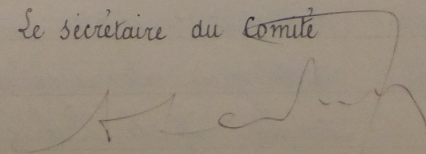 Le secrétaire du Comité